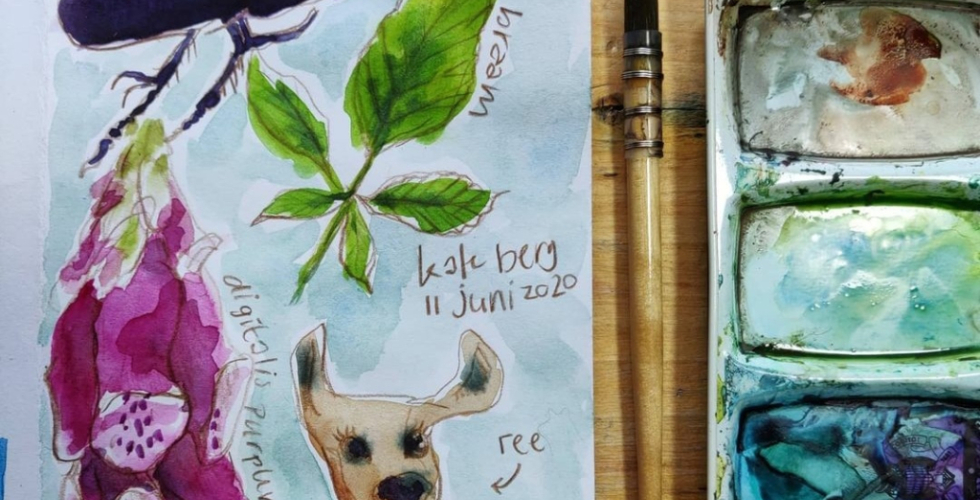 kate berg
11 juni 2020
digitalis purpur
ree